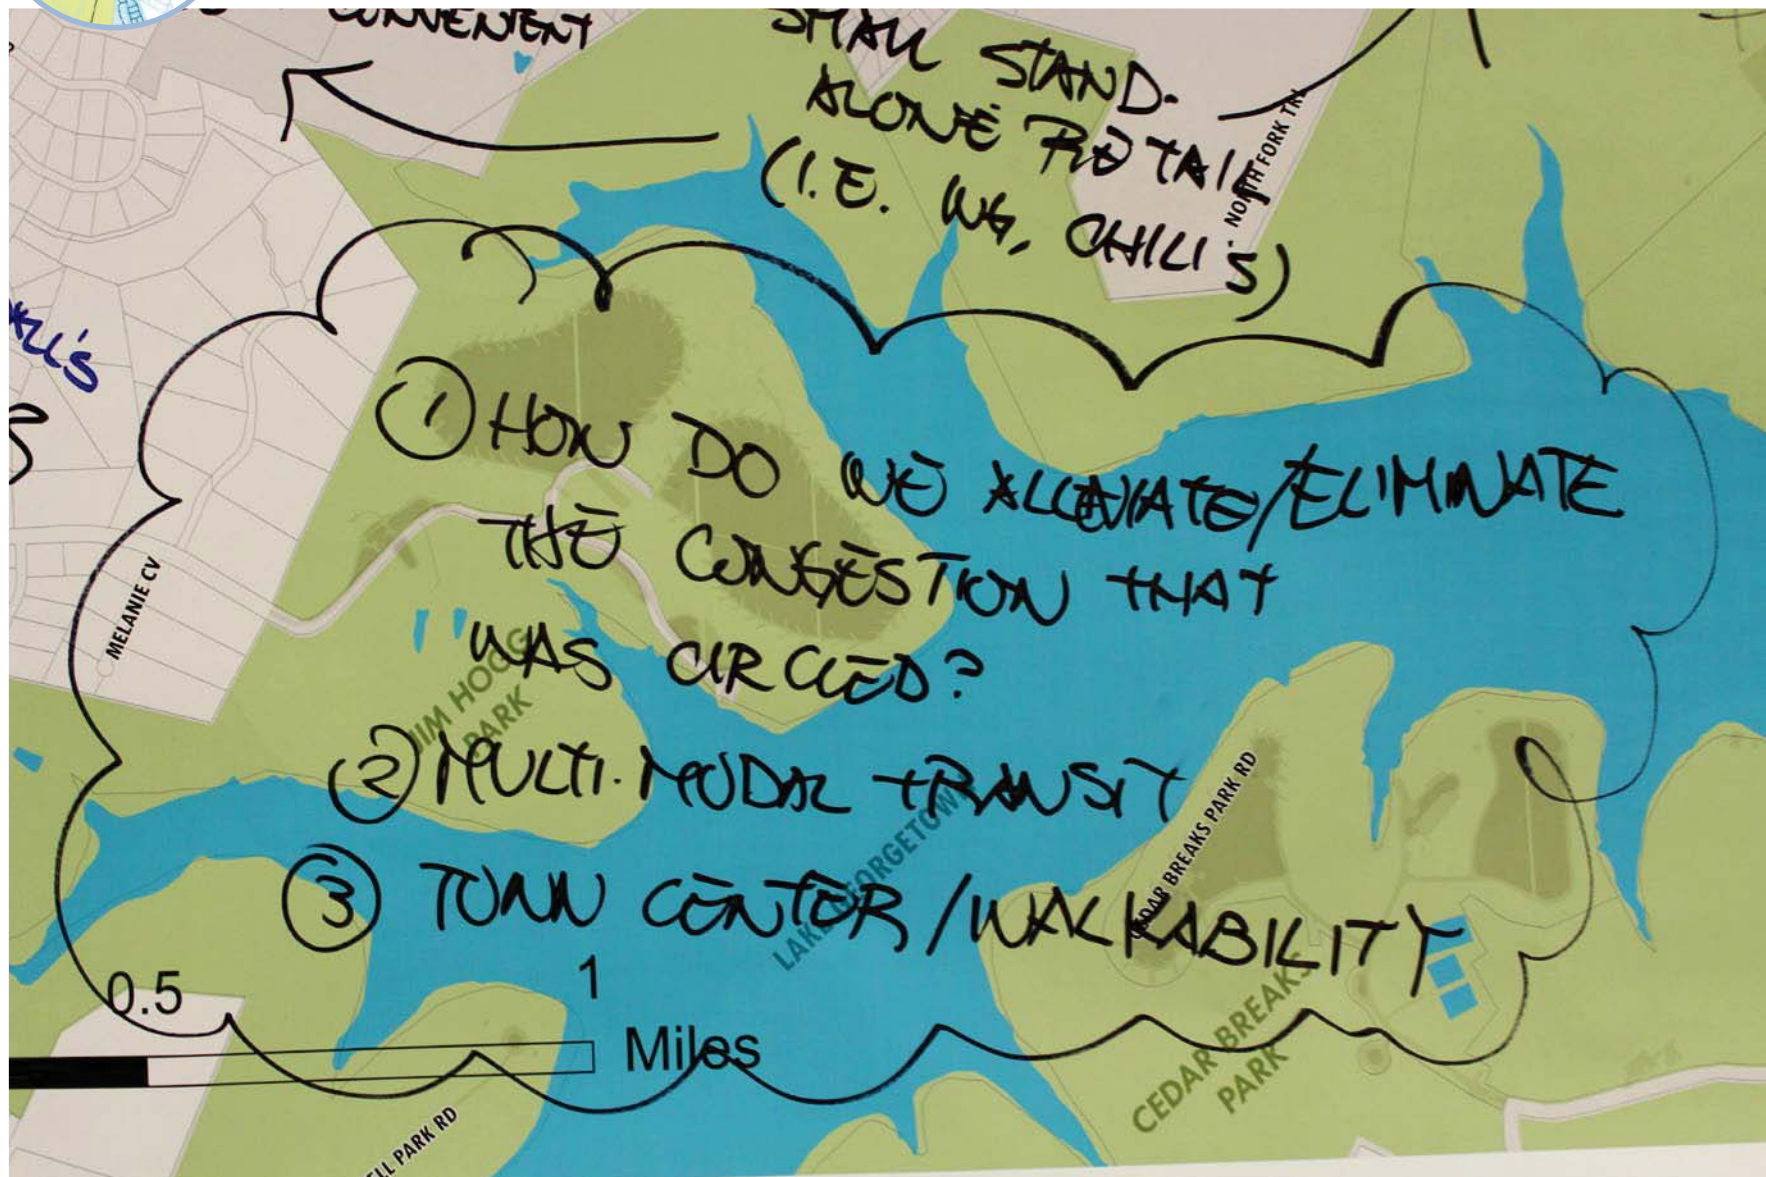 CONVENIENT
SMALL STAND-
ALONE RETAIL
(I.E. WG, CHILI'S)
NORTH FORK TRL
① HOW DO WE ALLEVIATE/ELIMINATE
THE CONGESTION THAT
WAS CIRCLED?
② MULTI-MODAL TRANSIT
③ TOWN CENTER/WALKABILITY
MELANIE CV
JIM HOGG
PARK
LAKE GEORGETOWN
CEDAR BREAKS PARK RD
CEDAR BREAKS
PARK
0.5
1
Miles
PARK RD